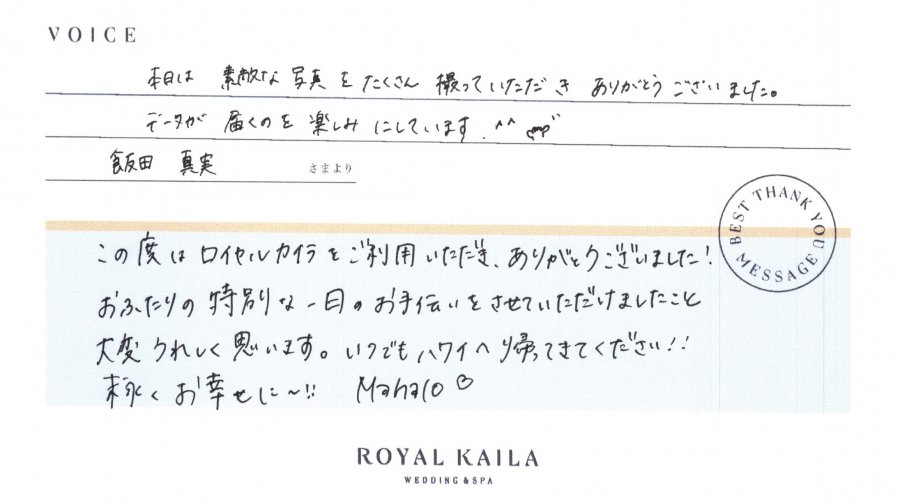 VOICE
本日は 素敵な 写真を たくさん 撮っていただき ありがとうございました。
データが 届くのを 楽しみ にしています。^^
飯田 真実 さまより
BEST THANK YOU MESSAGE
この度は ロイヤルカイラを ご利用いただき、ありがとうございました!
おふたりの 特別な 一日の お手伝いを させていただけましたこと
大変 うれしく 思います。いつでも ハワイへ 帰ってきてください!!
末永く お幸せに〜!! Mahalo♡
ROYAL KAILA
WEDDING & SPA